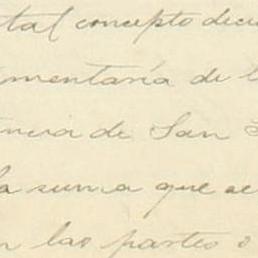 tal concepto deci
mentaría de l
encia de San
la suma que se
en las partes o